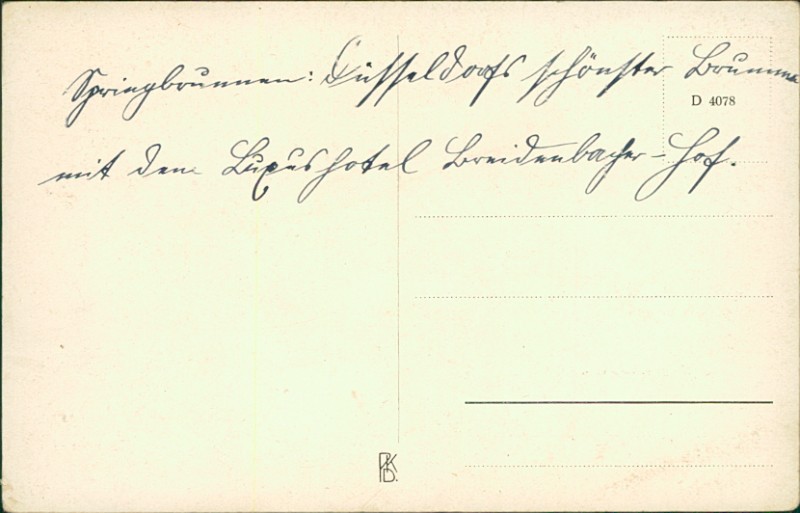 Springbrunnen: Düsseldorfs schönster Brunnen
D 4078
mit dem Luxushotel Breidenbacher-Hof.
PKD.